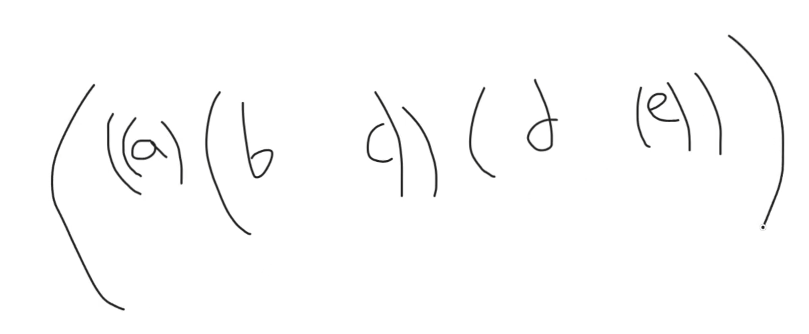 (((a)(b c))(d (e)))